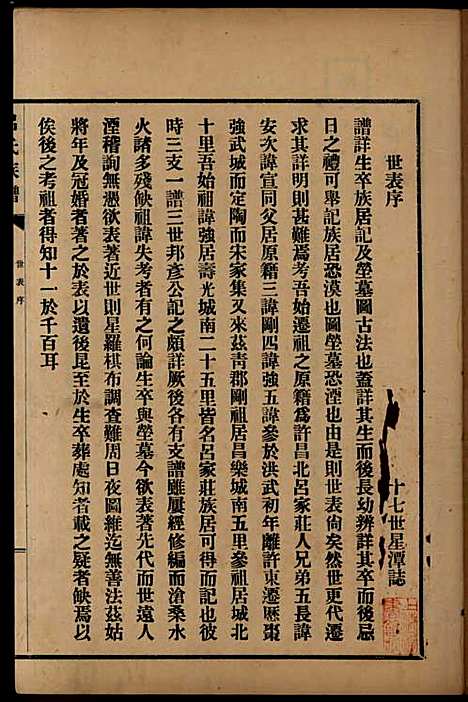 世表序
十七世星潭誌
譜詳生卒族居記及塋墓圖古法也蓋詳其生而後長幼辨詳其卒而後忌
日之禮可舉記族居恐漠也圖塋墓恐湮也由是則世表尙矣然世更代遷
求其詳明則甚難焉考吾始遷祖之原籍爲許昌北呂家莊人兄弟五長諱
安次諱宣同父居原籍三諱剛四諱強五諱參於洪武初年離許東遷歷棗
強武城而定陶而宋家集又來茲青郡剛祖居昌樂城南五里參祖居城北
十里吾始祖諱強居壽光城南二十五里皆名呂家莊族居可得而記也彼
時三支一譜三世邦彥公記之頗詳厥後各有支譜雖屢經修編而滄桑水
火諸多殘缺祖諱失考者有之何論生卒與塋墓今欲表著先代而世遠人
湮稽詢無憑欲表著近世則星羅棋布調查難周日夜圖維迄無善法茲姑
將年及冠婚者著之於表以遺後昆至於生卒葬處知者載之疑者缺焉以
俟後之考祖者得知十一於千百耳
氏族譜
世表序